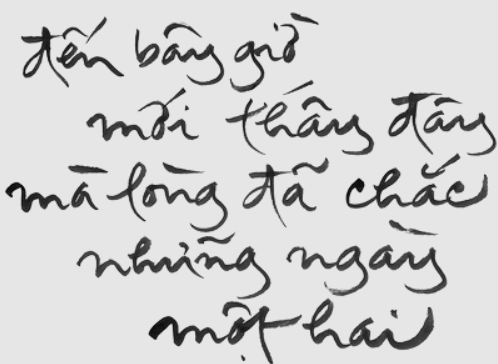 đến bây giờ
mới thấy đây
mà lòng đã chắc
những ngày
một hai